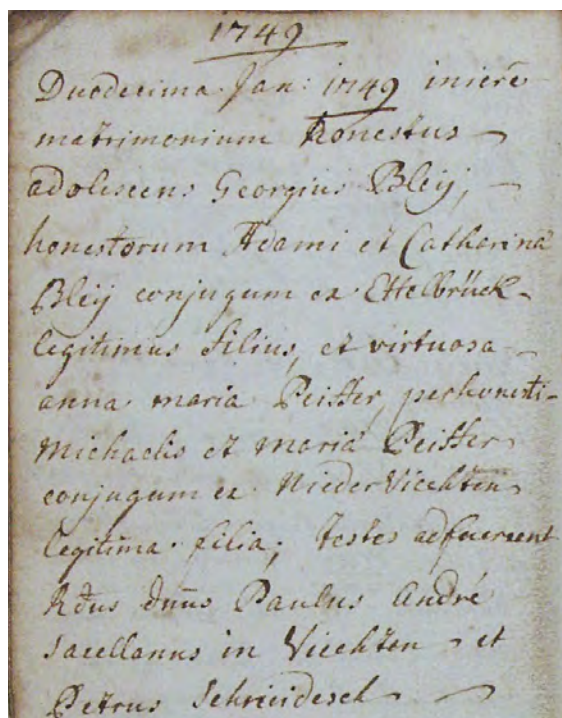 1749
Duodecima Jan: 1749 iniere
matrimonium honestus
adolescens Georgius Bleij,
honestorum Adami et Catharina
Bleij conjugum ex Ettelbrück
legitimus filius, et virtuosa
anna maria Peiffer, perhonesti
Michaelis et maria Peiffer
conjugum ex NiederViechten
legitima filia; testes adfuerunt
Rdus dnus Paulus André
sacellanus in Viechten et
Petrus